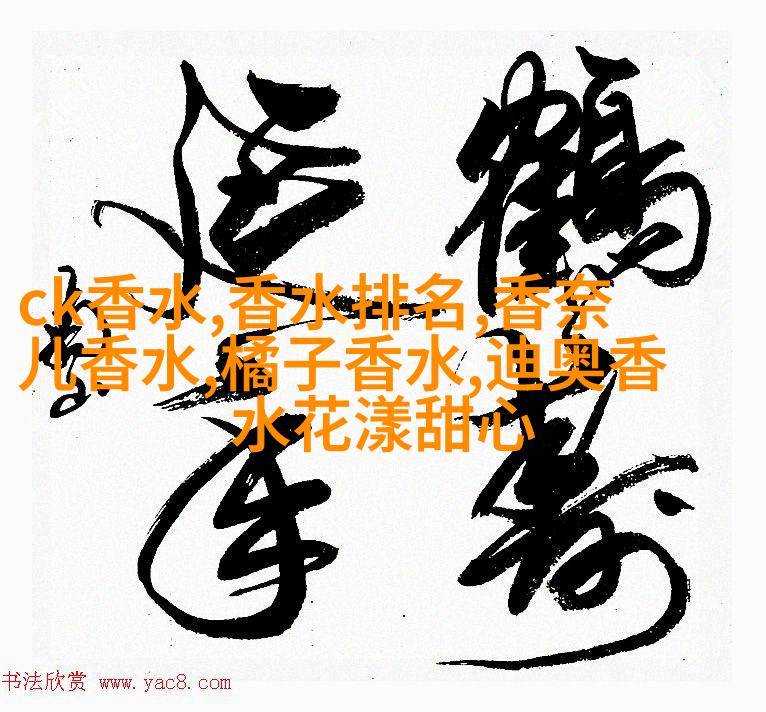 鶴壽
延年
ck香水,香水排名,香奈
儿香水,橘子香水,迪奥香
水花漾甜心
书法欣赏 www.yac8.com